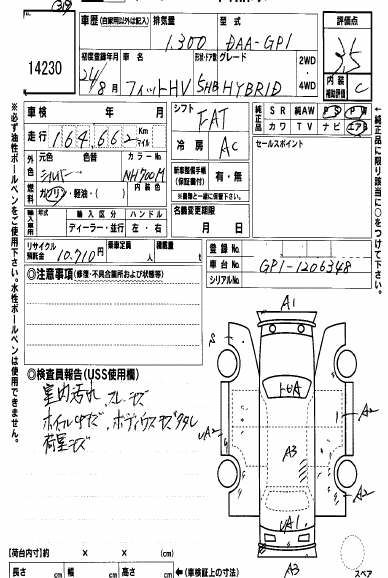 車歴 (自家用以外は記入) 排気量 型式 評価点
14230
1,300 DAA-GP1
3.5
初度登録年月 車名 形状・ドア数 グレード 2WD・4WD 内装補助評価 C
24/8月 フィットHV 5HB HYBRID
車検 年 月
シフト FAT
純正品 SR 純AW PS PW
カワ TV ナビ エアB
走行 164,662 Km マイル
冷房 AC
セールスポイント
外色 色替 カラーNo.
シルバー NH700M
燃料 ガソリン・軽油・( ) 内装色
新車整備手帳(保証書付) 有・無
※書類と一緒に保管して下さい。
輸入車用 年式 輸入区分 ハンドル
ディーラー・並行 左・右
名義変更期限 月 日
リサイクル預託金 10,710円 乗車定員 人 積載量 t
登録No.
車台No. GP1-1206348
シリアルNo.
◎注意事項(修復・不具合箇所および状態等)
◎検査員報告(USS使用欄)
室内汚れ、スレキズ
ホイルキズ、ボディウスキズタタレ
荷室キズ
※必ず油性ボールペンをご使用下さい。水性ボールペンは使用できません。
純正品に限り該当に○をつけて下さい。
A1
S
A2
A3
A2
A1
A3
スペア
[荷台内寸]約 × × (cm)
長さ cm 幅 cm 高さ cm ←(車検証上の寸法)